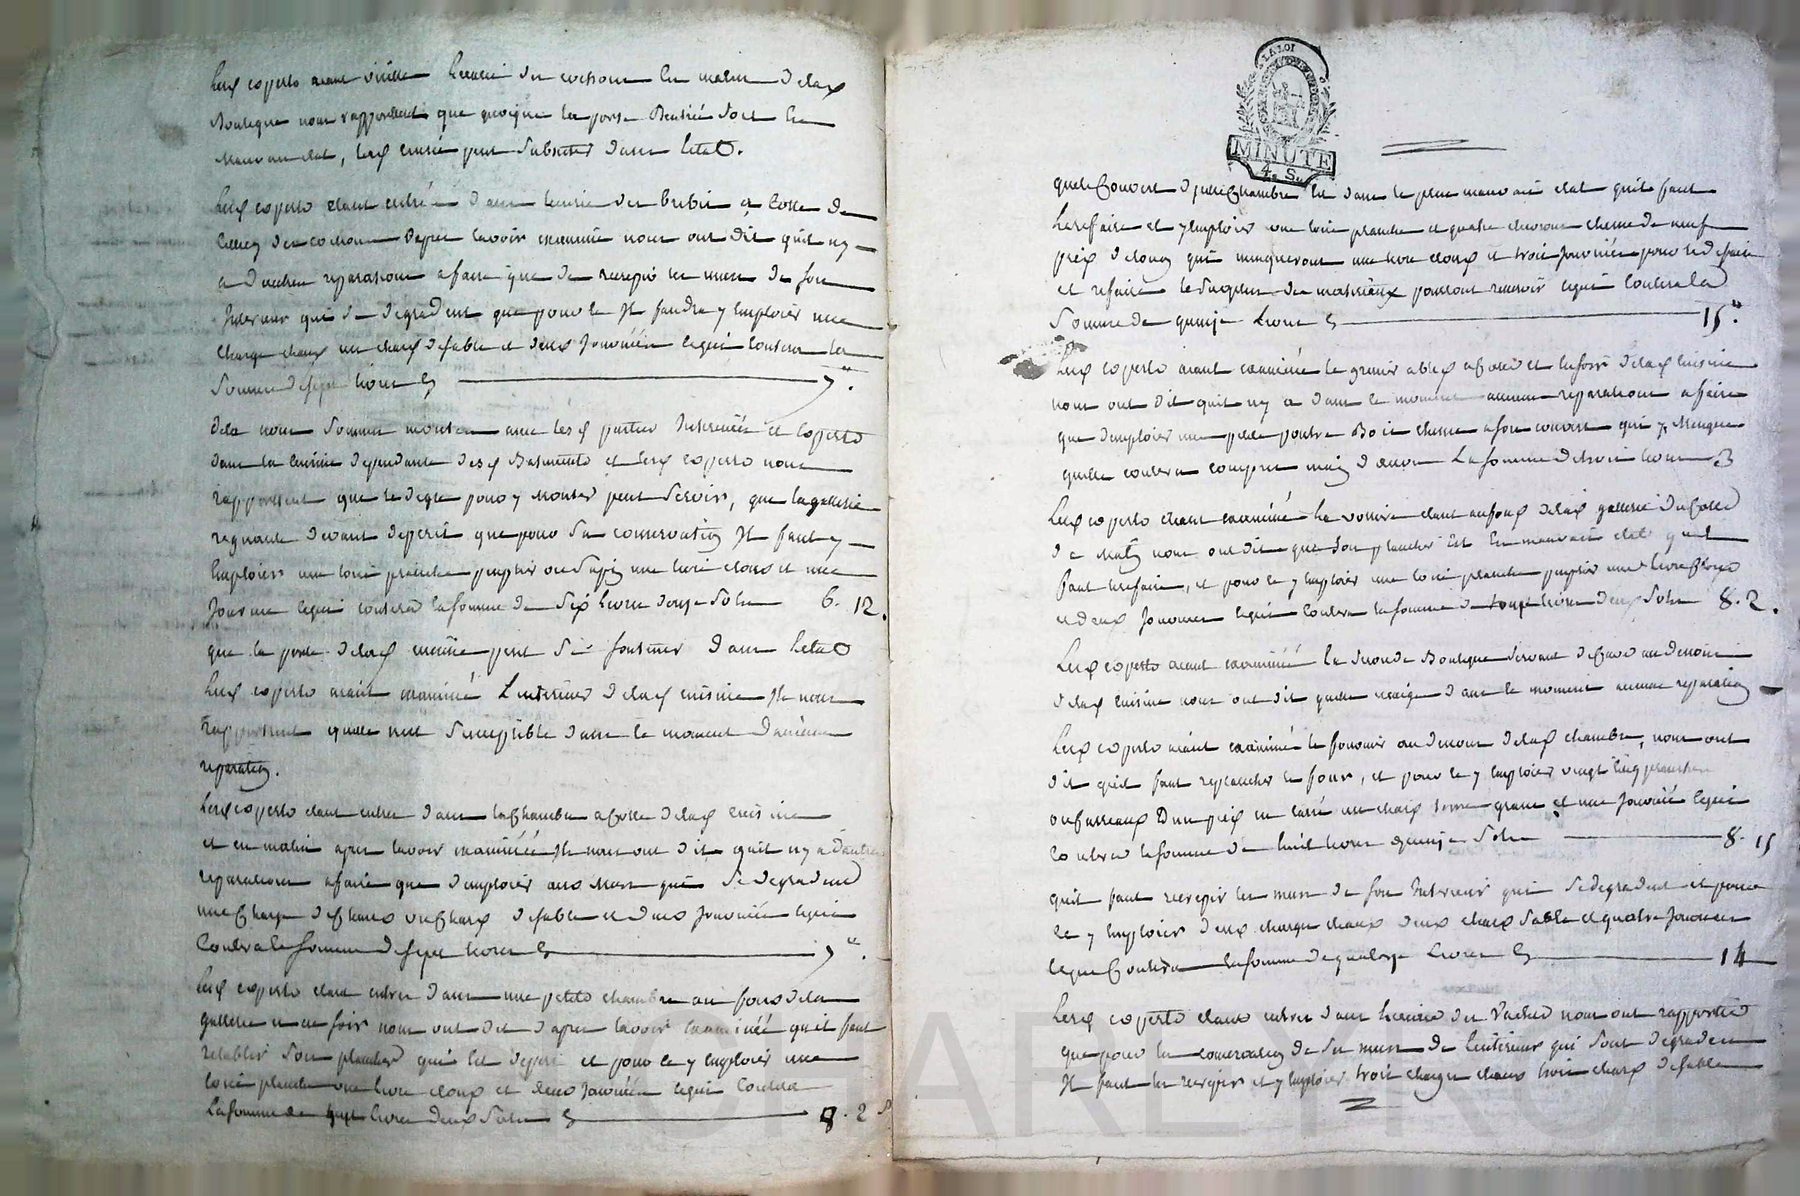 Lesd experts aiant visitté lecurie des cochons en matin de lad
Boutique nous rapportent que quoique la porte dentrée soit en
mauvais etat, lesd peut subsister dans letat.
Lesd experts etant entrés dans lecurie des brebis a cotté de
cochons d'apres lavoir examinée nous ont dit quil ny
a dautres reparations a faire que de recrepir les murs de son
Interieur qui se degradent que pour le Il faudra y Emploier une
charge chaux un char de sable et deux Journées lequel coutera la
somme de sept livres 7.
dela nous sommes montes avec lesd parties Interessées et experts
dans la cuisine dependante desd Batiments et lesd experts nous
rapportent que le degre pour y monter peut servir, que la gallerie
regnante devant deperit que pour sa conservation Il faut y
Emploier une toise planche ou sapin une livre clous et une
Journée lequel coutera la somme de six livres douze sols 6. 12.
que la porte delad cuisine peut se soutenir dans letat
Lesd experts aiant examiné Linterieur delad cuisine Ils nous
rapportent quelle nest susceptible dans le moment daucune
reparation.
Lesd experts etant entres dans la chambre a cotté delad cuisine
et en matin apres lavoir examinée Ils nous ont dit quil ny a dautres
reparations a faire que demploier aux murs qui se degradent
une charge de chaux un char de sable et deux Journées lequel
coutera la somme de sept livres 7.
Lesd experts etant entres dans une petite chambre au fond dela
gallerie et de soir nous ont dit d'apres lavoir examinée quil faut
retablir son plancher qui est deperi et pour le y Emploier une
toise planche une livre cloux et deux Journées lequel coutera
La somme de huit livres deux sols 8. 2 s
LA LOI
MINUTE
4. S.
que le couvert de petite chambre est dans le plus mauvais etat quil faut
Le refaire et y Emploier une toise planche et quatre chevrons chesne de neuf
pieds de long qui manqueront une livre cloux et trois Journées pour le defaire
et refaire le surplus des materiaux pouvant resservir lequel coutera la
somme de quinze livres 15.
Lesd experts aiant examiné le grenier a bled a cotté et en soir delad cuisine
nous ont dit quil ny a dans le moment aucune reparation a faire
que demploier une piece poutre Bois chesne a son couvert qui y manque
quelle coutera compris main doeuvre La somme de trois livres 3
Lesd experts etant examiné La voliere etant au fond delad gallerie du cotté
de Matin nous ont dit que son plancher est en mauvais etat quil
faut le refaire, et pour le y Emploier une toise planche une livre cloux
et deux Journées lequel coutera la somme de huit livres deux sols 8. 2.
Lesd experts aiant examinée la seconde Boutique servant de cave au dessous
delad cuisine nous ont dit quelle nexige dans le moment aucune reparation
Lesd experts aiant examiné le fournier au dessous delad chambre, nous ont
dit quil faut replancher le four, et pour le y Emploier vingt cinq planches
ou carreaux Dun pied en carré un char terre grasse et une Journée lequel
coutera la somme de huit livres quinze sols 8. 15
quil faut recrepir les murs de son Interieur qui se degradent et pour
le y Emploier deux charges chaux deux chars sable et quatre Journées
lequel coutera la somme de quatorze livres 14
Lesd experts etant entres dans lecurie des vaches nous ont rapporté
que pour la conservation de ses murs de linterieur qui sont degradés
Il faut les recrepir et y Emploier trois charges chaux trois chars de sable